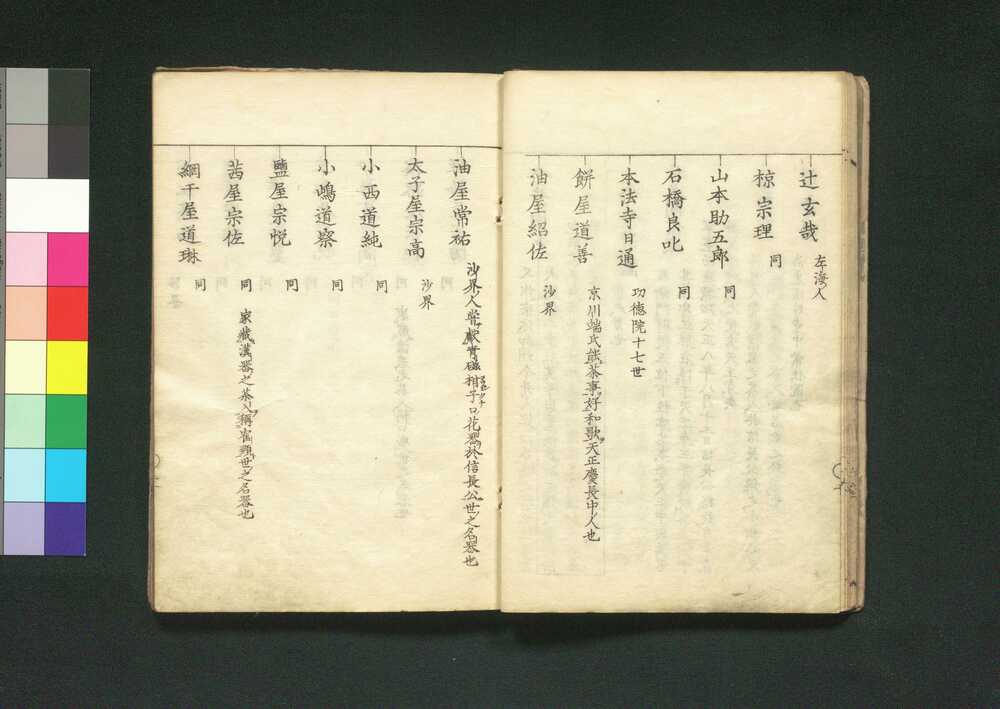 辻玄哉
左海人
椋宗理
同
山本助五郎
同
石橋良叱
同
本法寺日通
功徳院十七世
餅屋道善
京川端氏能茶事好和歌天正慶長中人也
油屋紹佐
沙界
油屋常祐
沙界人嘗献青磁柑子口花器於信長公世之名器也
太子屋宗高
沙界
小西道純
同
小嶋道察
同
鹽屋宗悦
同
茜屋宗佐
同
家蔵漢器之茶入稱雀頸世之名器也
網干屋道琳
同